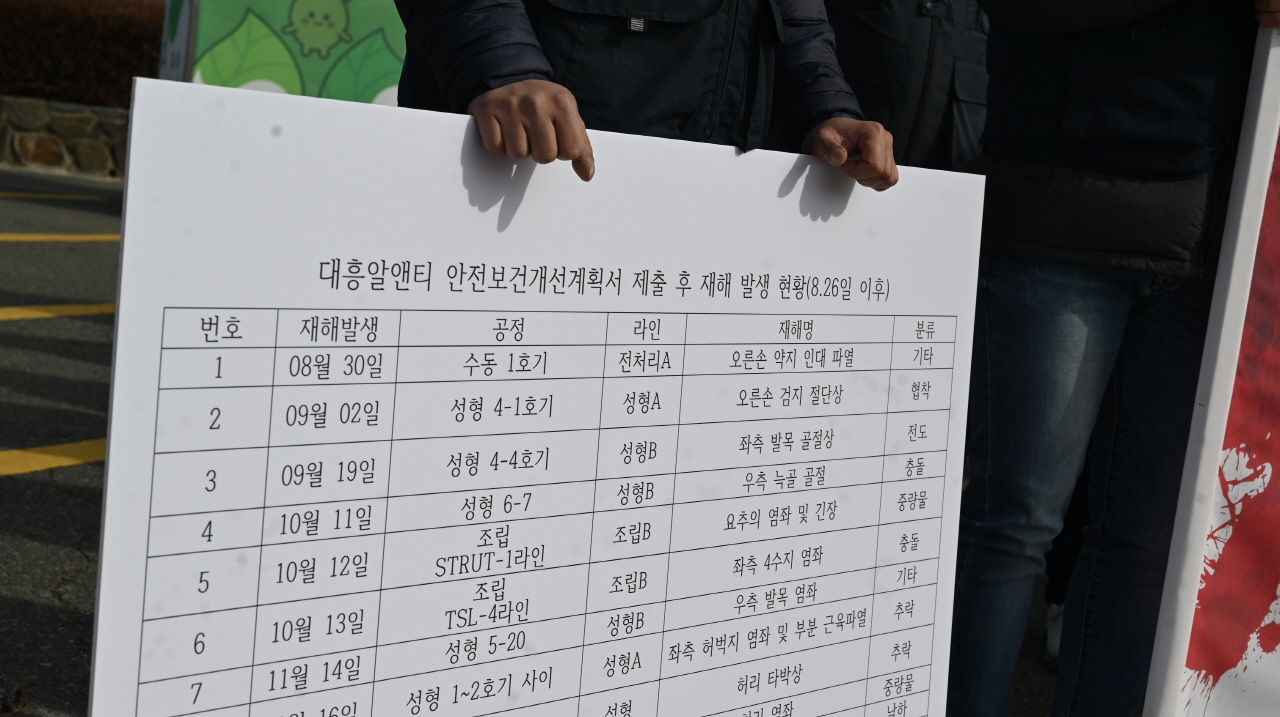 대흥알앤티 안전보건개선계획서 제출 후 재해 발생 현황(8.26일 이후)
번호 재해발생 공정 라인 재해명 분류
1 08월 30일 수동 1호기 전처리A 오른손 약지 인대 파열 기타
2 09월 02일 성형 4-1호기 성형A 오른손 검지 절단상 협착
3 09월 19일 성형 4-4호기 성형B 좌측 발목 골절상 전도
4 10월 11일 성형 6-7 성형B 우측 늑골 골절 충돌
5 10월 12일 조립 STRUT-1라인 조립B 요추의 염좌 및 긴장 중량물
6 10월 13일 조립 TSL-4라인 조립B 좌측 4수지 염좌 충돌
7 11월 14일 성형 5-20 성형B 우측 발목 염좌 기타
16일 성형 1~2호기 사이 성형A 좌측 허벅지 염좌 및 부분 근육파열 추락
성형 허리 타박상 추락
허리 염좌 중량물
낙하